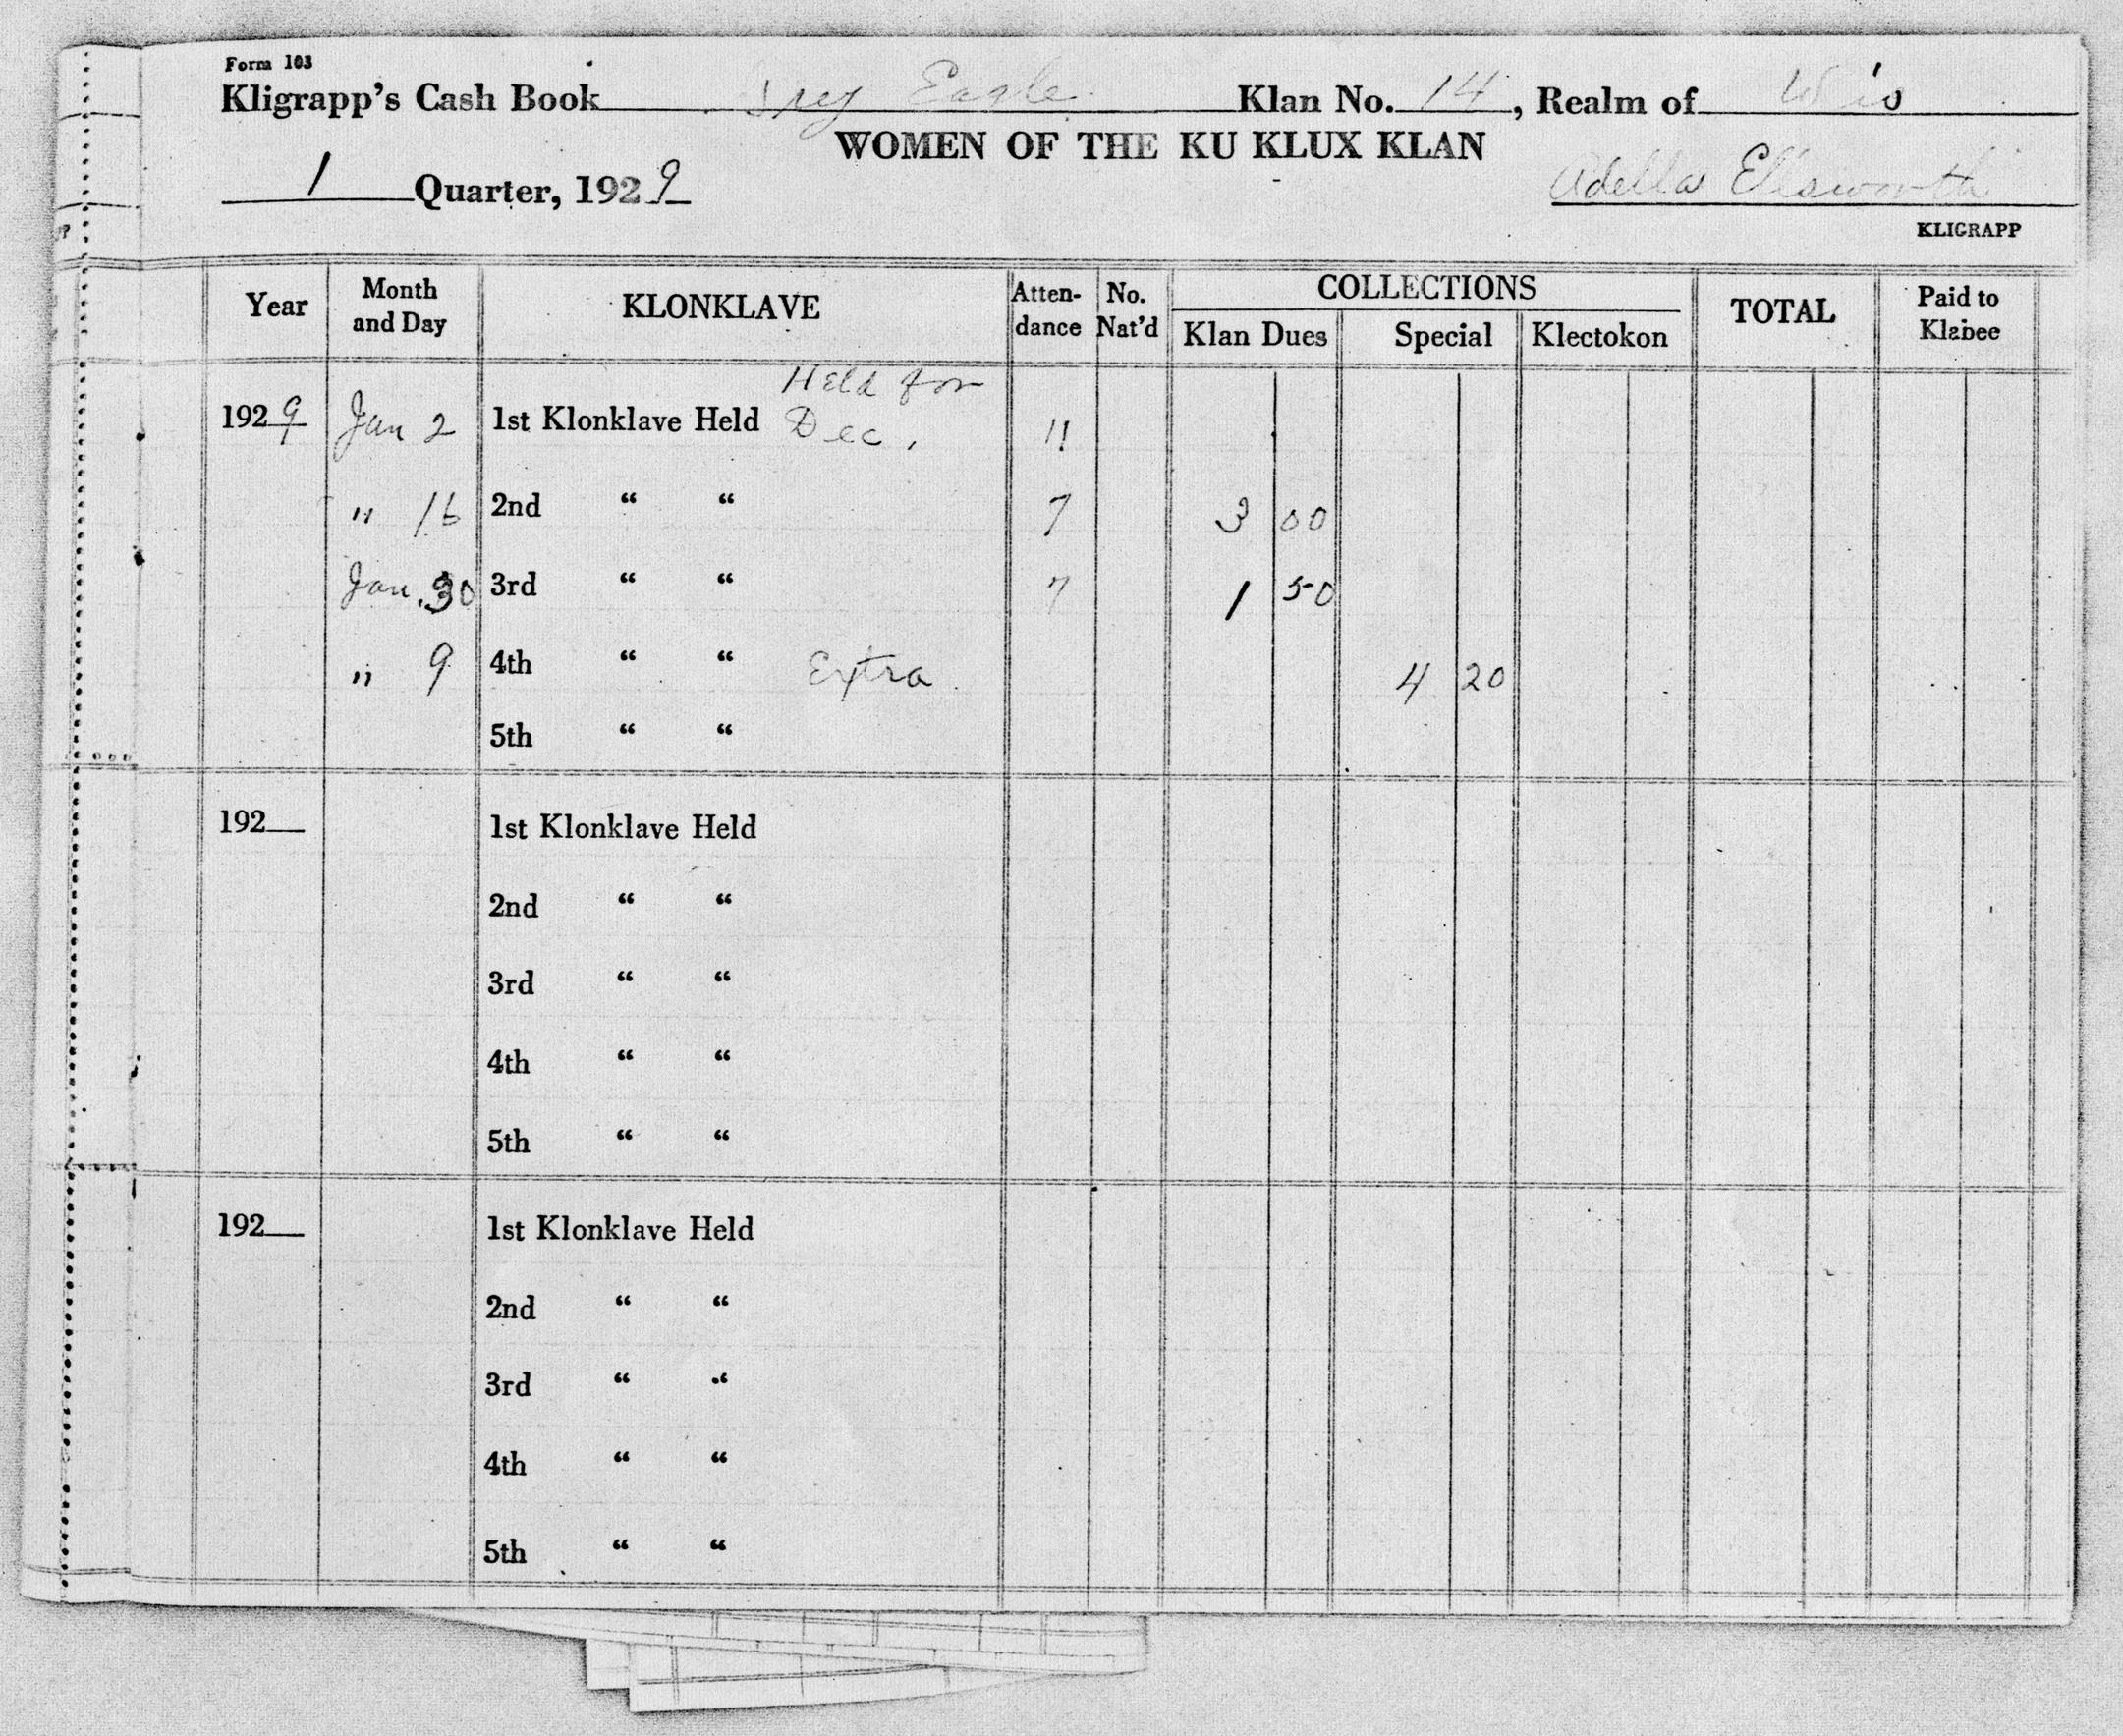 Form 103
Kligrapp's Cash Book Grey Eagle Klan No. 14, Realm of Wis
WOMEN OF THE KU KLUX KLAN
1 Quarter, 1929 Adella Ellsworth
KLIGRAPP
Year Month and Day KLONKLAVE Atten-dance No. Nat'd COLLECTIONS TOTAL Paid to Klabee
Klan Dues Special Klectokon
Held for
1929 Jan 2 1st Klonklave Held Dec. 11
" 16 2nd " " 7 3 00
Jan. 30 3rd " " 7 1 50
" 9 4th " " Extra 4 20
5th " "
192 1st Klonklave Held
2nd " "
3rd " "
4th " "
5th " "
192 1st Klonklave Held
2nd " "
3rd " "
4th " "
5th " "